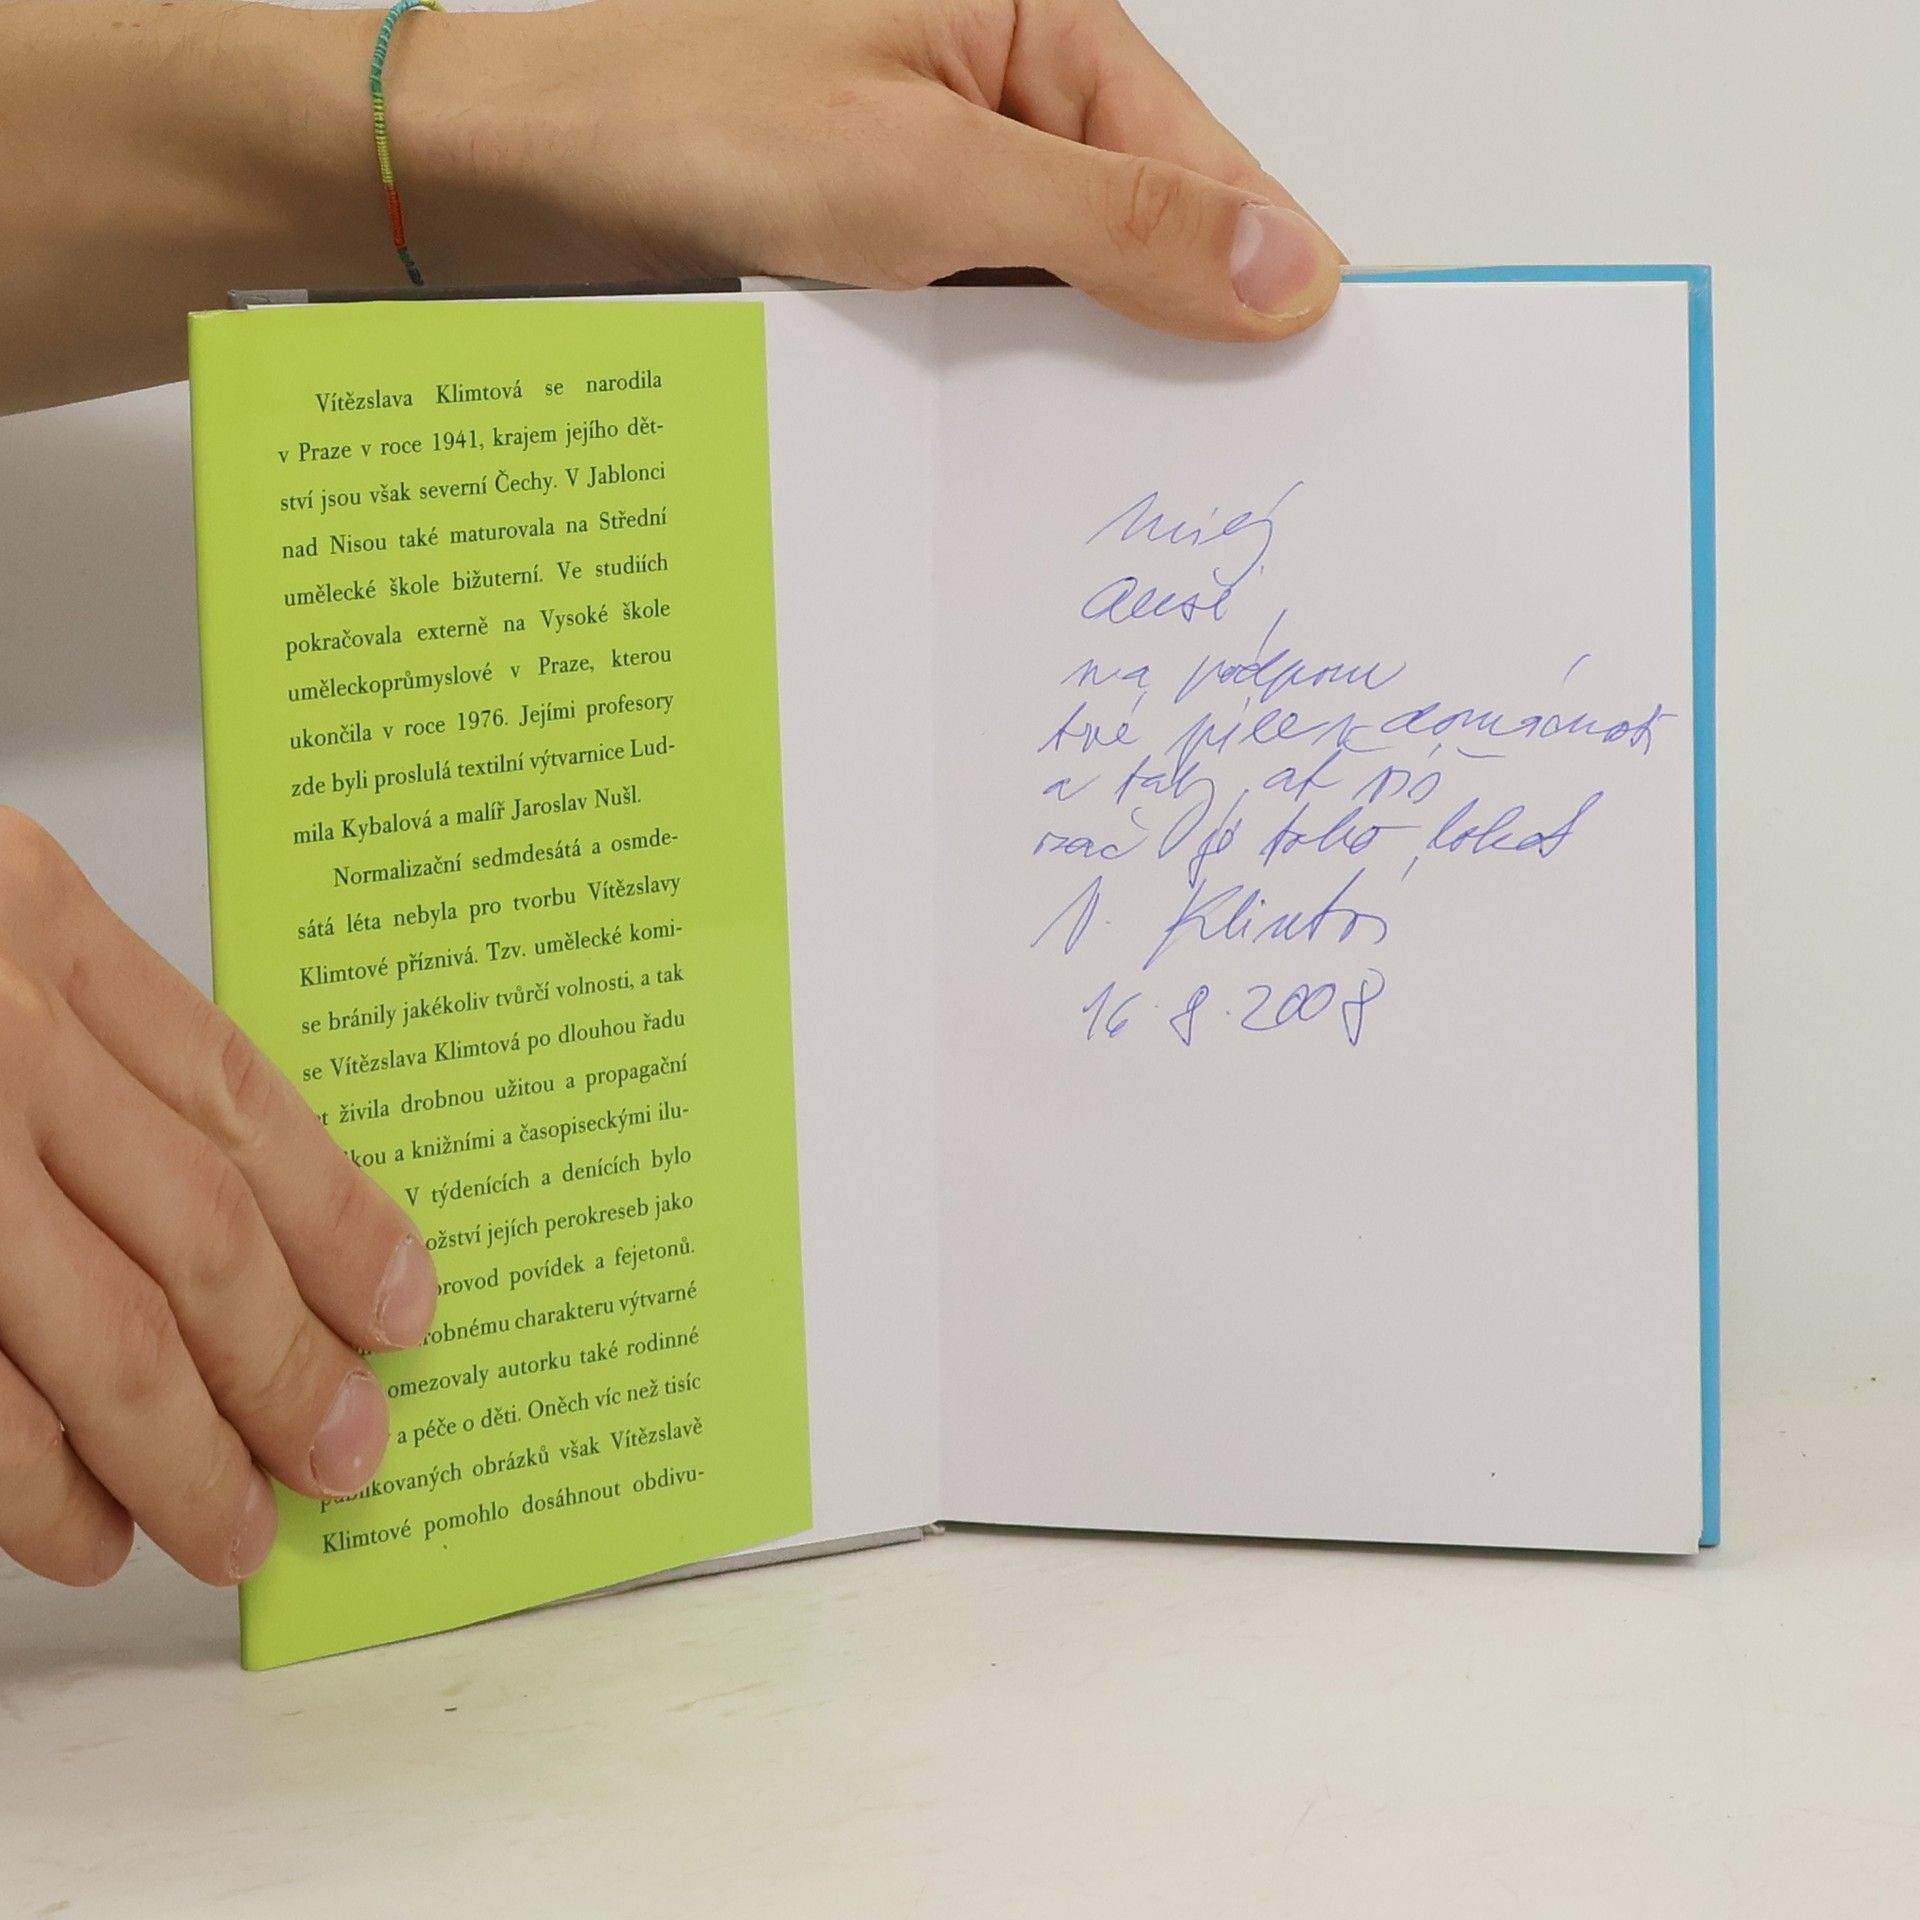 Vítězslava Klimtová se narodila
v Praze v roce 1941, krajem jejího dět-
ství jsou však severní Čechy. V Jablonci
nad Nisou také maturovala na Střední
umělecké škole bižuterní. Ve studiích
pokračovala externě na Vysoké škole
uměleckoprůmyslové v Praze, kterou
ukončila v roce 1976. Jejími profesory
zde byli proslulá textilní výtvarnice Lud-
mila Kybalová a malíř Jaroslav Nušl.
Normalizační sedmdesátá a osmde-
sátá léta nebyla pro tvorbu Vítězslavy
Klimtové příznivá. Tzv. umělecké komi-
se bránily jakékoliv tvůrčí volnosti, a tak
se Vítězslava Klimtová po dlouhou řadu
živila drobnou užitou a propagační
a knižními a časopiseckými ilu-
V týdenících a denících bylo
jejích perokreseb jako
povídek a fejetonů.
charakteru výtvarné
omezovaly autorku také rodinné
a péče o děti. Oněch víc než tisíc
obrázků však Vítězslavě
Klimtové pomohlo dosáhnout obdivu-
na podporu
tvé píle k
a taky, ať
zač je toho loket
V. Klimtová
16. 8. 2008